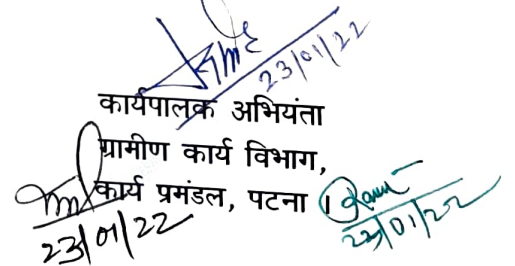 23/01/22
कार्यपालक अभियंता
ग्रामीण कार्य विभाग,
कार्य प्रमंडल, पटना।
23/01/22
23/01/22